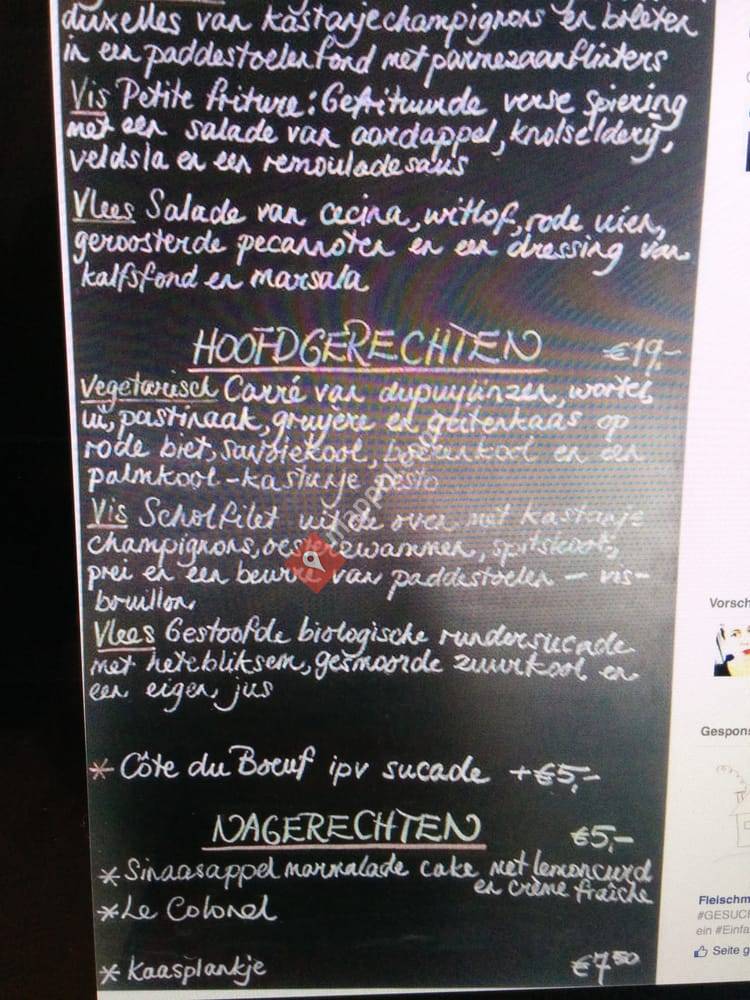 duxelles van kastanjechampignons en boleten
in een paddestoelenfond met parmezaanflinters
Vis Petite friture: Gefrituurde verse spiering
met een salade van aardappel, knolselderij,
veldsla en een remouladesaus
Vlees Salade van cecina, witlof, rode uien,
geroosterde pecannoten en een dressing van
kalfsfond en marsala
HOOFDGERECHTEN €19,-
Vegetarisch Carré van dupuylinzen, wortel
ui, pastinaak, gruyère en geitenkaas op
rode biet, savooiekool, boerenkool en een
palmkool-kastanje pesto
Vis Scholfilet uit de oven met kastanje
champignons, oesterzwammen, spitskool,
prei en een beurre van paddestoelen - vis-
bouillon
Vlees Gestoofde biologische rundersucade
met hetebliksem, gesmoorde zuurkool en
een eigen jus
* Côte du Boeuf ipv sucade +€5,-
NAGERECHTEN €5,-
* Sinaasappel marmalade cake met lemoncurd
en crème fraîche
* Le Colonel
* Kaasplankje €7,50
Vorsch
Gespons
Fleischm
#GESUC
ein #Einfa
Seite g